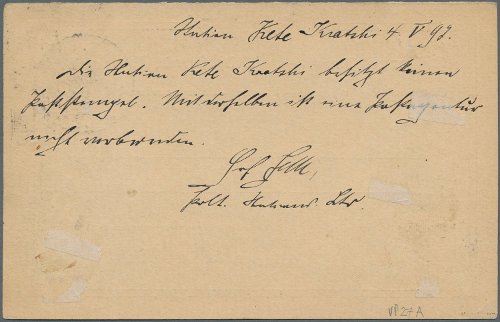 Station Kete Kratschi 4. V 97.
Die Station Kete Kratschi besitzt keinen
Poststempel. Mit derselben ist eine Postagentur
nicht verbunden.
Stations
VP 27 A